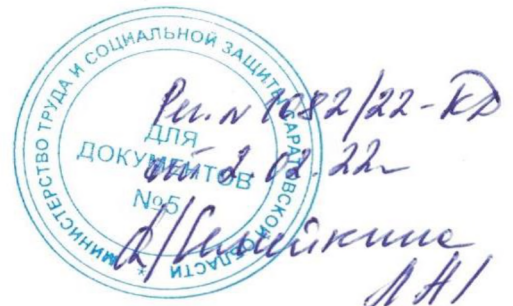 МИНИСТЕРСТВО ТРУДА И СОЦИАЛЬНОЙ ЗАЩИТЫ САРАТОВСКОЙ ОБЛАСТИ
ДЛЯ
ДОКУМЕНТОВ
№5
Рег. N 1082/22-КД
от 2.02.22г
Л.Н/